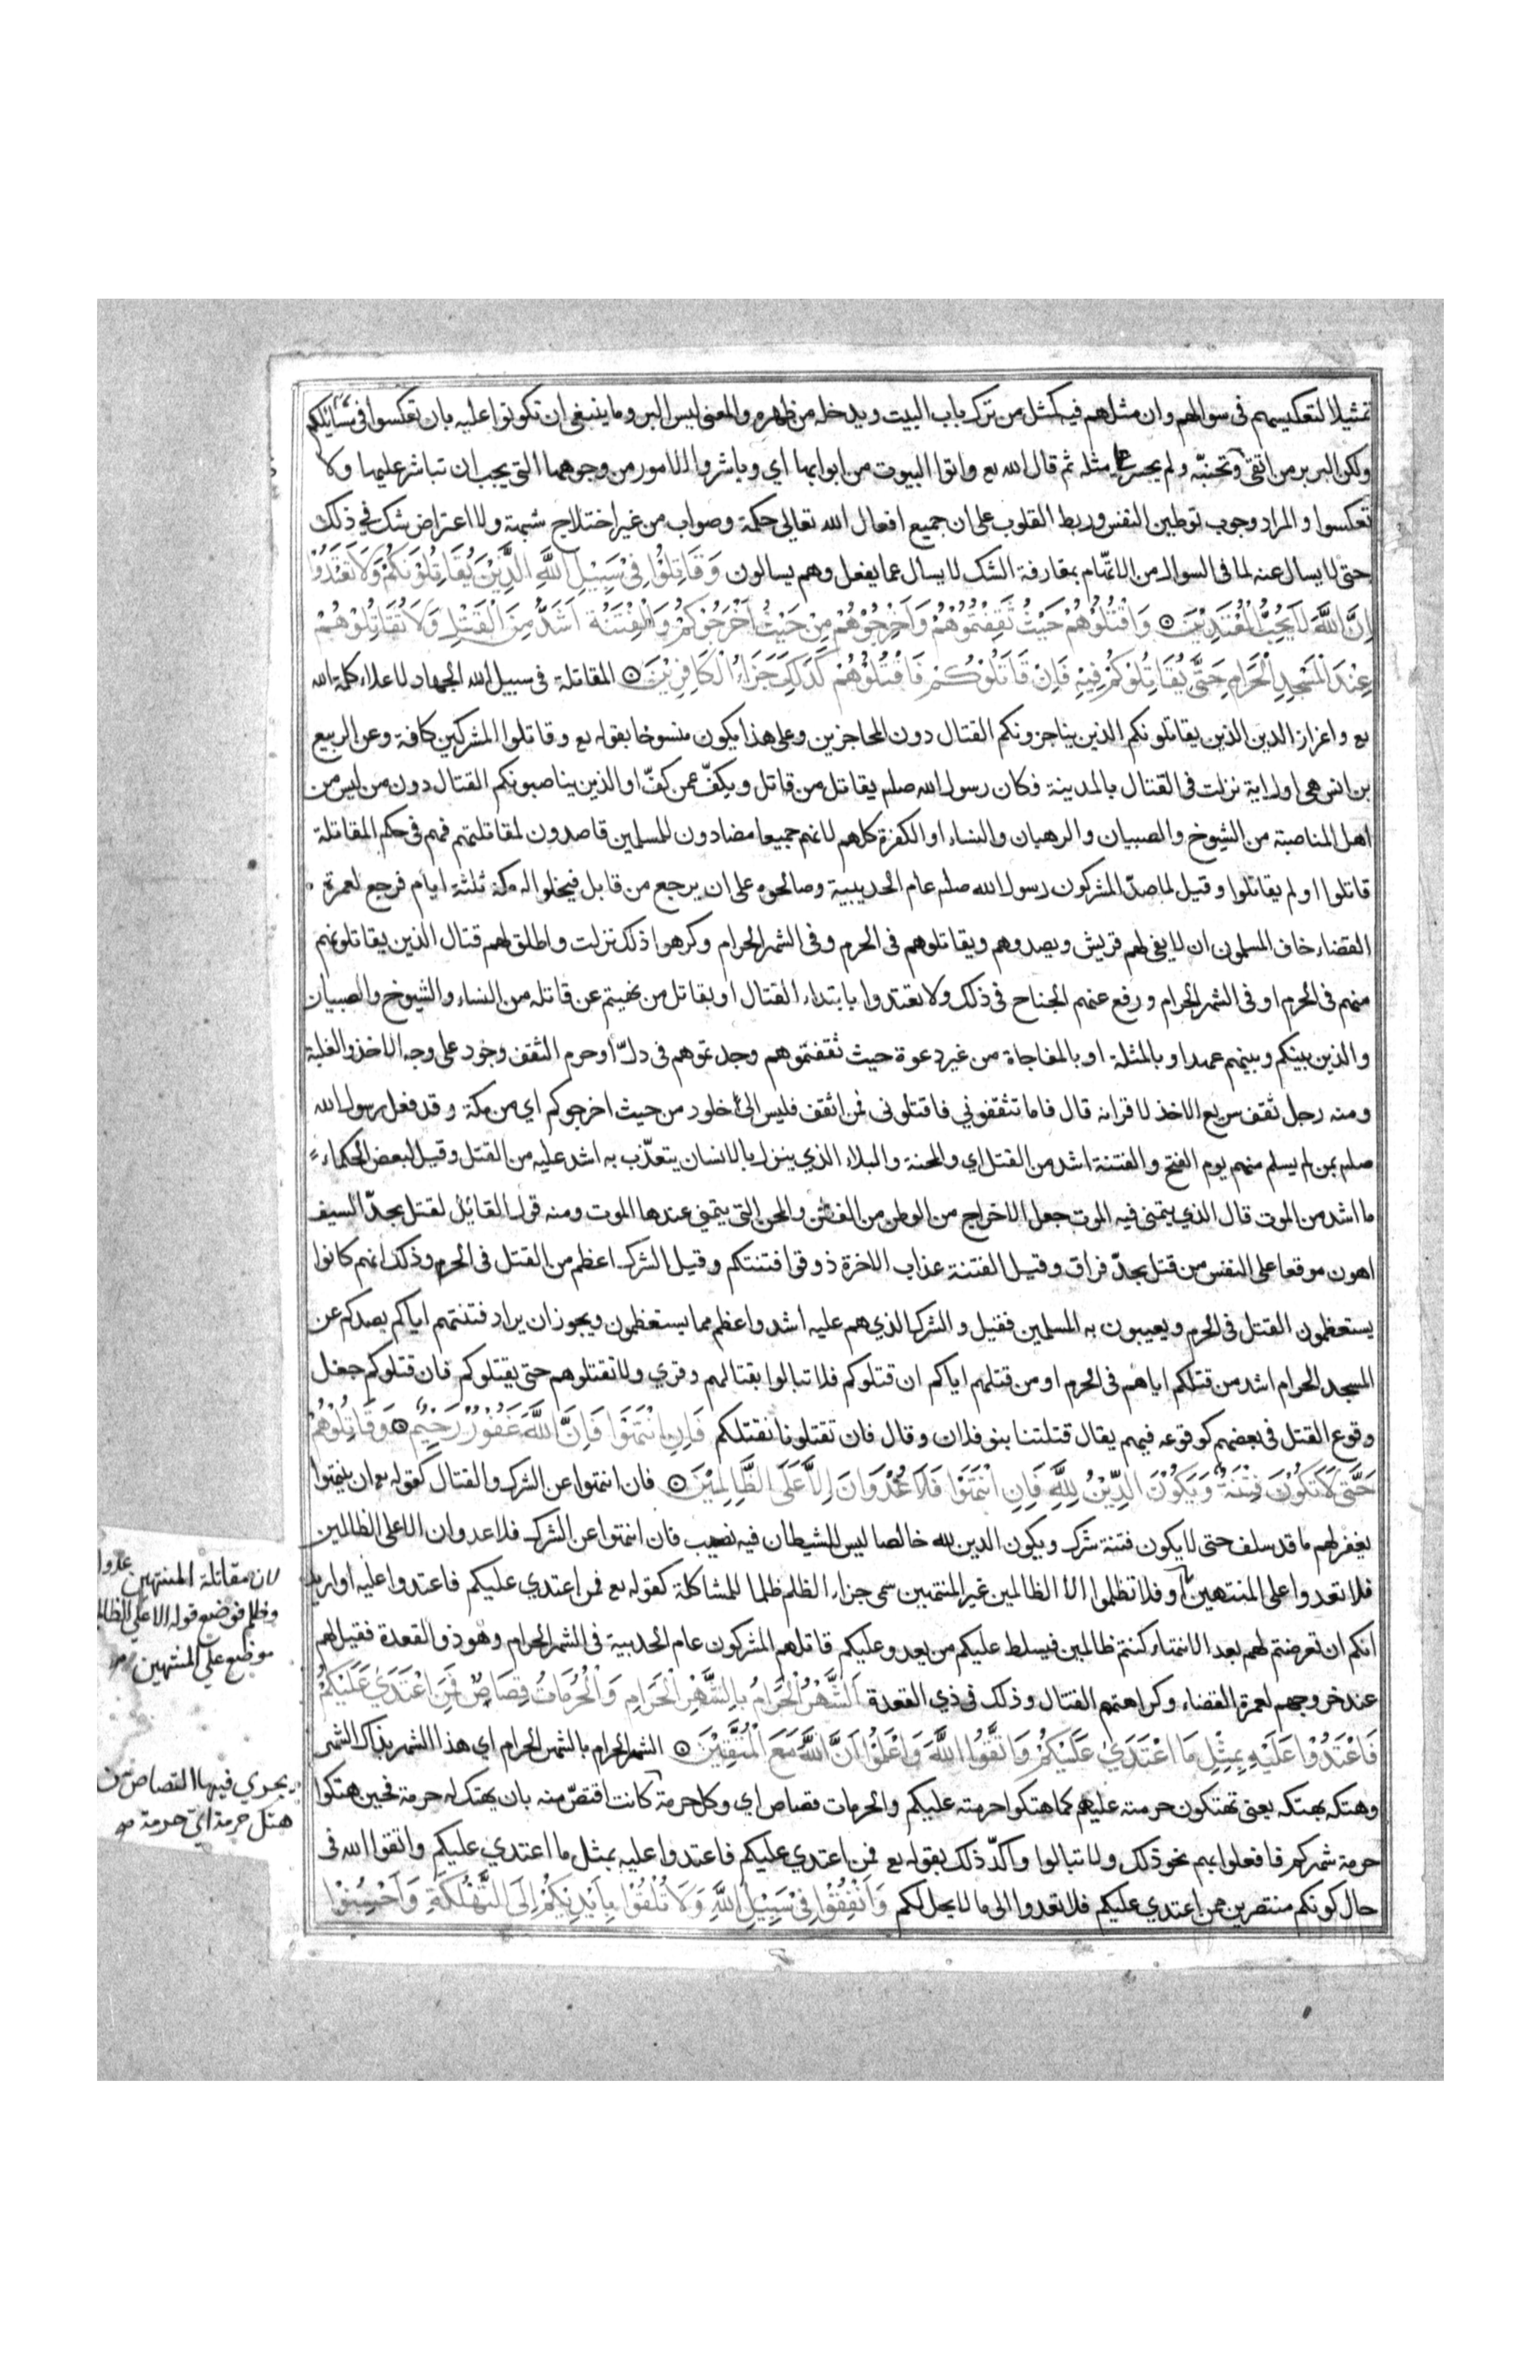 تمثيلا لتعكيسهم في سوالهم وان مثلهم فيه كمثل من ترك باب البيت ويدخله من ظهره والمعنى ليس البر وما ينبغي ان تكونوا عليه بان تعكسوا في مسائلكم
ولكن البر بر من اتقى وتجنبّه ولم يجسر على مثله ثم قال الله تع واتوا البيوت من ابوابها اي وباشروا الامور من وجوهها التي يجب ان تباشر عليها ولا
تعكسوا والمراد وجوب توطين النفس وربط القلوب على ان جميع افعال الله تعالى حكمة وصواب من غير اختلاج شبهة ولا اعتراض شك في ذلك
حتى لا يسال عنه لما في السوال من الاتهام بمقارفة الشك لا يسال عما يفعل وهم يسالون وَقَاتِلُوا فِي سَبِيْلِ اللَّهِ الَّذِيْنَ يُقَاتِلُوْنَكُمْ وَلَا تَعْتَدُوْا
اِنَّ اللَّهَ لَا يُحِبُّ الْمُعْتَدِيْنَ ۞ وَاقْتُلُوْهُمْ حَيْثُ ثَقِفْتُمُوْهُمْ وَاَخْرِجُوْهُمْ مِنْ حَيْثُ اَخْرَجُوْكُمْ وَالْفِتْنَةُ اَشَدُّ مِنَ الْقَتْلِ وَلَا تُقَاتِلُوْهُمْ
عِنْدَ الْمَسْجِدِ الْحَرَامِ حَتَّى يُقَاتِلُوْكُمْ فِيْهِ فَاِنْ قَاتَلُوْكُمْ فَاقْتُلُوْهُمْ كَذَلِكَ جَزَاءُ الْكَافِرِيْنَ ۞ المقاتلة في سبيل الله الجهاد لاعلاء كلمة الله
تع واعزاز الدين الذين يقاتلونكم الذين يناجزونكم القتال دون المحاجزين وعلى هذا يكون منسوخا بقوله تع وقاتلوا المشركين كافة وعن الربيع
بن انس هي اول اية نزلت في القتال بالمدينة فكان رسول الله صلعم يقاتل من قاتل ويكفّ عمن كفّ او الذين يناصبونكم القتال دون من ليس من
اهل المناصبة من الشيوخ والصبيان والرهبان والنساء او الكفرة كلهم لانهم جميعا مضادون للمسلمين قاصدون لمقاتلتهم فهم في حكم المقاتلة
قاتلوا او لم يقاتلوا وقيل لما صدّ المشركون رسول الله صلعم عام الحديبية وصالحوه على ان يرجع من قابل فيخلوا له مكة ثلثة ايام فرجع لعمرة
القضاء خاف المسلمون ان لا يفي لهم قريش ويصدوهم ويقاتلوهم في الحرم وفي الشهر الحرام وكرهوا ذلك نزلت واطلق لهم قتال الذين يقاتلونهم
منهم في الحرم او في الشهر الحرام ورفع عنهم الجناح في ذلك ولا تعتدوا بابتداء القتال او بقتال من نهيتم عن قاتله من النساء والشيوخ والصبيان
والذين بينكم وبينهم عهد او بالمثلة او بالمفاجاة من غير دعوة حيث ثقفتموهم وجدتموهم في حلّ او حرم الثقف وجود على وجه الاخذ والغلبة
ومنه رجل ثقف سريع الاخذ لاقرانه قال فاما تثقفوني فاقتلوني فمن اثقف فليس الى خلود من حيث اخرجوكم اي من مكة وقد فعل رسول الله
صلعم بمن لم يسلم منهم يوم الفتح والفتنة اشد من القتل اي والمحنة والبلاء الذي ينزل بالانسان يتعذّب به اشد عليه من القتل وقيل لبعض الحكماء
ما اشد من الموت قال الذي يتمنى فيه الموت جعل الاخراج من الوطن من الفتن والمحن التي يتمنى عندها الموت ومنه قول القائل لقتل بحدّ السيف
اهون موقعا على النفس من قتل بحدّ فراق وقيل الفتنة عذاب الاخرة ذوقوا فتنتكم وقيل الشرك اعظم من القتل في الحرم وذلك انهم كانوا
يستعظمون القتل في الحرم ويعيبون به المسلمين فقيل والشرك الذي هم عليه اشد واعظم مما يستعظمون ويجوز ان يراد فتنتهم اياكم بصدكم عن
المسجد الحرام اشد من قتلكم اياهم في الحرم او من قتلهم اياكم ان قتلوكم فلا تبالوا بقتالهم وقري ولا تقتلوهم حتى يقتلوكم فان قتلوكم جعل
وقوع القتل في بعضهم كوقوعه فيهم يقال قتلتنا بنو فلان وقال فان تقتلونا نقتلكم فَاِنِ انْتَهَوْا فَاِنَّ اللَّهَ غَفُوْرٌ رَحِيْمٌ ۞ وَقَاتِلُوْهُمْ
حَتَّى لَا تَكُوْنَ فِتْنَةٌ وَيَكُوْنَ الدِّيْنُ لِلَّهِ فَاِنِ انْتَهَوْا فَلَا عُدْوَانَ اِلَّا عَلَى الظَّالِمِيْنَ ۞ فان انتهوا عن الشرك والقتال كقوله تع ان ينتهوا
يغفر لهم ما قد سلف حتى لا يكون فتنة شرك ويكون الدين لله خالصا ليس للشيطان فيه نصيب فان انتهوا عن الشرك فلا عدوان الا على الظالمين
فلا تعدوا على المنتهين او فلا تظلموا الا الظالمين غير المنتهين سمى جزاء الظلم ظلما للمشاكلة كقوله تع فمن اعتدي عليكم فاعتدوا عليه او اريد
انكم ان تعرضتم لهم بعد الانتهاء كنتم ظالمين فيسلط عليكم من يعدو عليكم قاتلهم المشركون عام الحديبية في الشهر الحرام وهو ذو القعدة فقيل لهم
عند خروجهم لعمرة القضاء وكراهتهم القتال وذلك في ذي القعدة اَلشَّهْرُ الْحَرَامُ بِالشَّهْرِ الْحَرَامِ وَالْحُرُمَاتُ قِصَاصٌ فَمَنِ اعْتَدَيَ عَلَيْكُمْ
فَاعْتَدُوْا عَلَيْهِ بِمِثْلِ مَا اعْتَدَيٰ عَلَيْكُمْ وَاتَّقُوا اللَّهَ وَاعْلَمُوْا اَنَّ اللَّهَ مَعَ الْمُتَّقِيْنَ ۞ الشهر الحرام بالشهر الحرام اي هذا الشهر بذاك الشهر
وهتكه بهتكه يعني تهتكون حرمته عليهم كما هتكوا حرمته عليكم والحرمات قصاص اي وكل حرمة كانت اقتصّ منه بان يهتك له حرمة فحين هتكوا
حرمة شهركم فافعلوا بهم نحو ذلك ولا تبالوا واكدّ ذلك بقوله تع فمن اعتدي عليكم فاعتدوا عليه بمثل ما اعتدي عليكم واتقوا الله في
حال كونكم منتصرين ممن اعتدي عليكم فلا تعدوا الى ما لا يحل لكم وَاَنْفِقُوْا فِيْ سَبِيْلِ اللَّهِ وَلَا تُلْقُوْا بِاَيْدِيْكُمْ اِلَى التَّهْلُكَةِ وَاَحْسِنُوْا
لان مقاتلة المنتهين عدوا
وظلم فوضع قوله الا على الظال
موضع على المنتهين
يجري فيها القصاص من
هتك حرمة اي حرمة